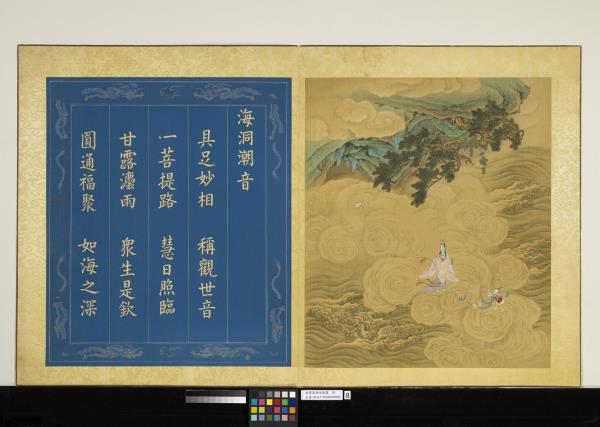 海洞潮音
具足妙相 稱觀世音
一菩提路 慧日照臨
甘露灋雨 衆生是欽
圓通福聚 如海之深
8